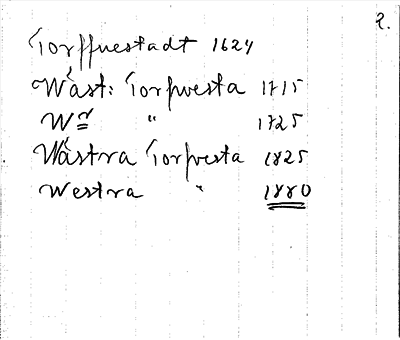 2.
Torffuestadt 1624
Wäst: Torpvesta 1715
W:a " 1725
Wästra Torpvesta 1825
Westra " 1880